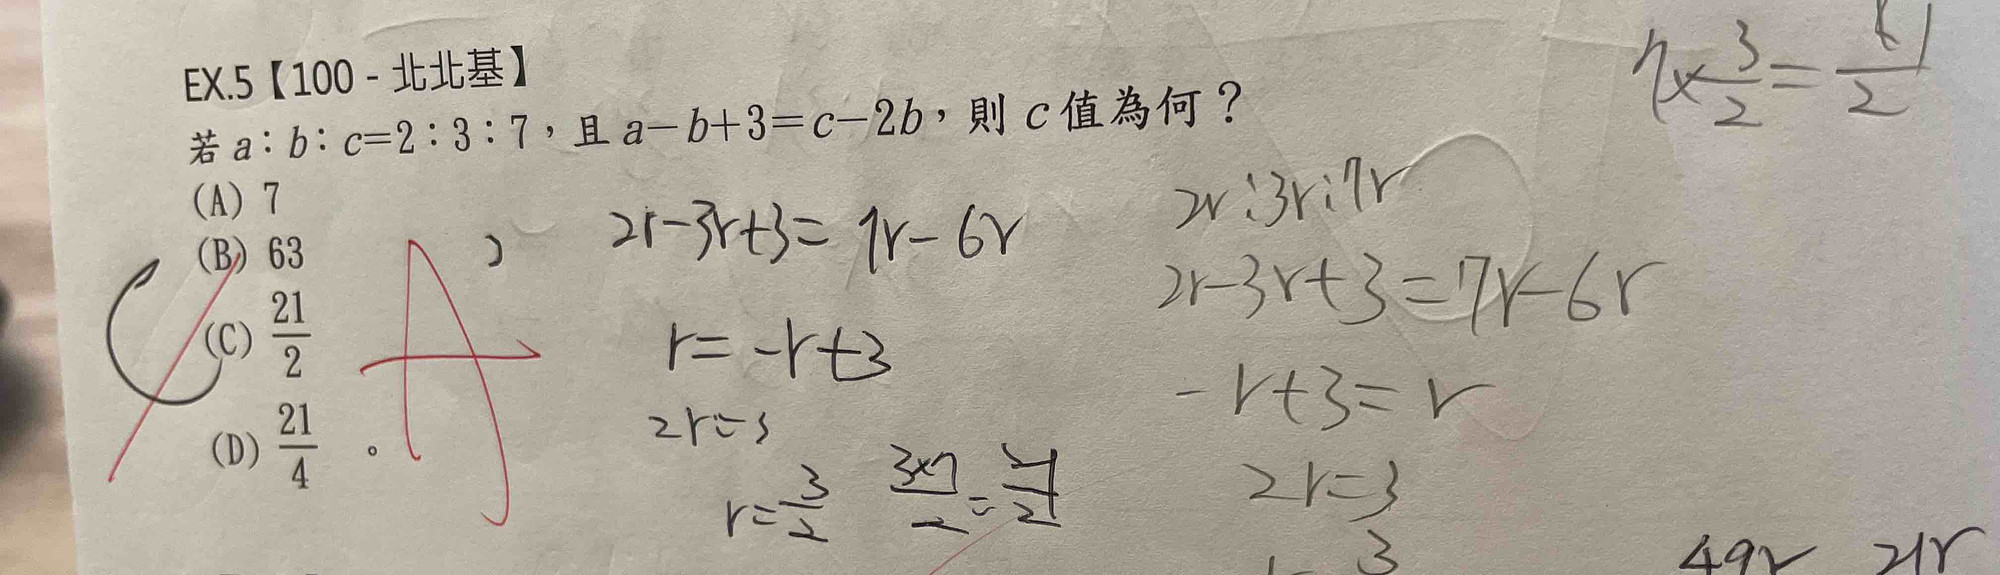 EX.5【100 - 北北基】
若 a：b：c=2：3：7，且 a－b+3=c－2b，則 c 值為何？
(A) 7
(B) 63
(C) 21/2
(D) 21/4 。
A
2r-3r+3= 7r-6r
r= -r+3
2r=3
r=3/2 3×7/2=21/2
2r:3r:7r
2r-3r+3=7r-6r
-r+3=r
2r=3
3
7×3/2=21/2
49r 21r